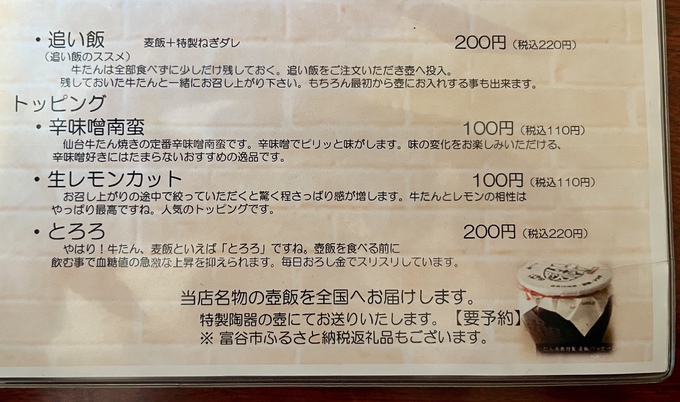 ・追い飯 麦飯＋特製ねぎダレ 200円(税込220円)
(追い飯のススメ)
牛たんは全部食べずに少しだけ残しておく。追い飯をご注文いただき壺へ投入。
残しておいた牛たんと一緒にお召し上がり下さい。もちろん最初から壺にお入れする事も出来ます。
トッピング
・辛味噌南蛮 100円(税込110円)
仙台牛たん焼きの定番辛味噌南蛮です。辛味噌でピリッと味がします。味の変化をお楽しみいただける、
辛味噌好きにはたまらないおすすめの逸品です。
・生レモンカット 100円(税込110円)
お召し上がりの途中で絞っていただくと驚く程さっぱり感が増します。牛たんとレモンの相性は
やっぱり最高ですね。人気のトッピングです。
・とろろ 200円(税込220円)
やはり！牛たん、麦飯といえば「とろろ」ですね。壺飯を食べる前に
飲む事で血糖値の急激な上昇を抑えられます。毎日おろし金でスリスリしています。
当店名物の壺飯を全国へお届けします。
特製陶器の壺にてお送りいたします。【要予約】
※ 富谷市ふるさと納税返礼品もございます。